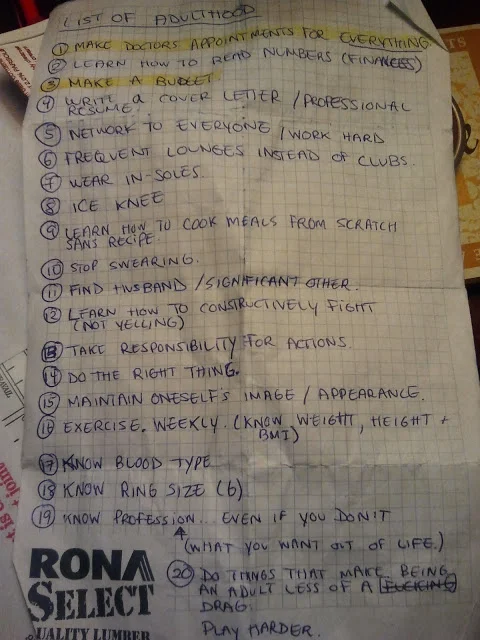 LIST OF ADULTHOOD
① MAKE DOCTORS APPOINTMENTS FOR EVERYTHING
② LEARN HOW TO READ NUMBERS (FINANCES)
③ MAKE A BUDGET
④ WRITE a COVER LETTER / PROFESSIONAL
RESUME.
⑤ NETWORK TO EVERYONE / WORK HARD
⑥ FREQUENT LOUNGES INSTEAD OF CLUBS.
⑦ WEAR IN-SOLES.
⑧ ICE KNEE
⑨ LEARN HOW TO COOK MEALS FROM SCRATCH
SANS RECIPE.
⑩ STOP SWEARING.
⑪ FIND HUSBAND / SIGNIFICANT OTHER.
⑫ LEARN HOW TO CONSTRUCTIVELY FIGHT
(NOT YELLING)
⑬ TAKE RESPONSIBILITY FOR ACTIONS.
⑭ DO THE RIGHT THING.
⑮ MAINTAIN ONESELF'S IMAGE / APPEARANCE.
⑯ EXERCISE. WEEKLY. (KNOW WEIGHT, HEIGHT +
BMI)
⑰ KNOW BLOOD TYPE
⑱ KNOW RING SIZE (6)
⑲ KNOW PROFESSION... EVEN IF YOU DON'T
(WHAT YOU WANT OUT OF LIFE.)
⑳ DO THINGS THAT MAKE BEING
AN ADULT LESS OF A FUCKING
DRAG.
PLAY HARDER.
RONA
SELECT
QUALITY LUMBER